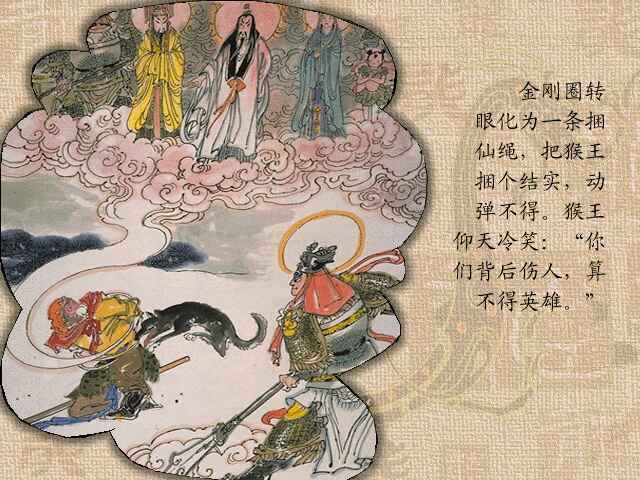 金刚圈转
眼化为一条捆
仙绳，把猴王
捆个结实，动
弹不得。猴王
仰天冷笑：“你
们背后伤人，算
不得英雄。”